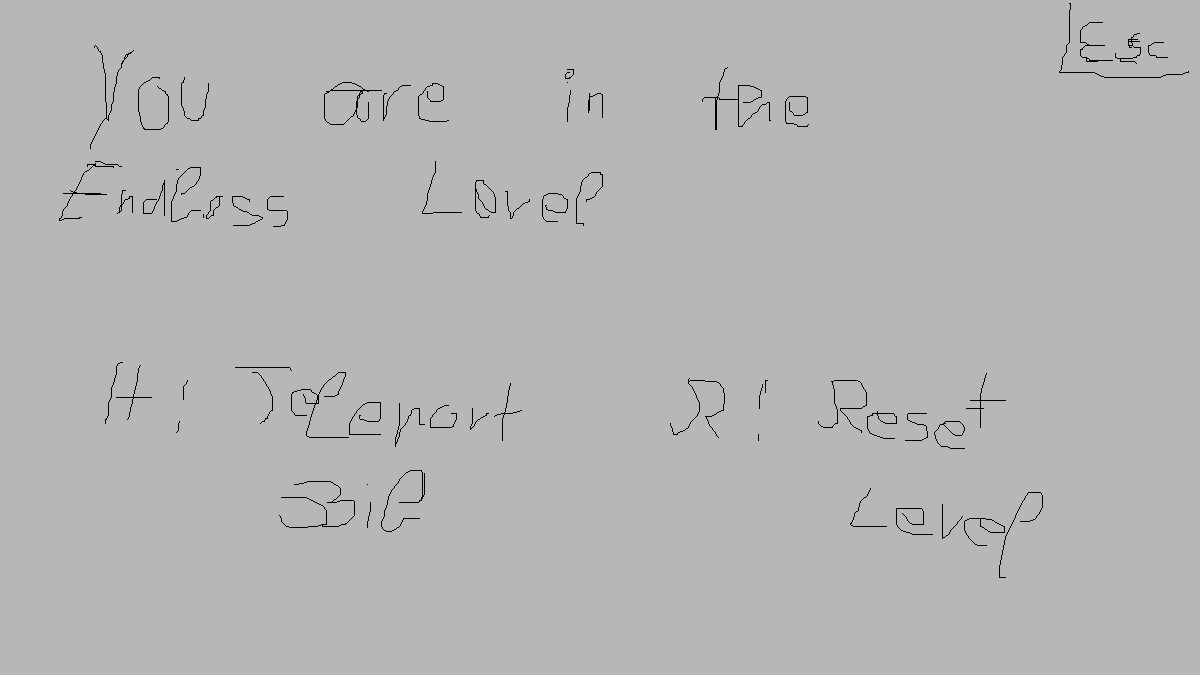 Esc
You are in the
Endless Level
H: Teleport
Bil
R: Reset
Level